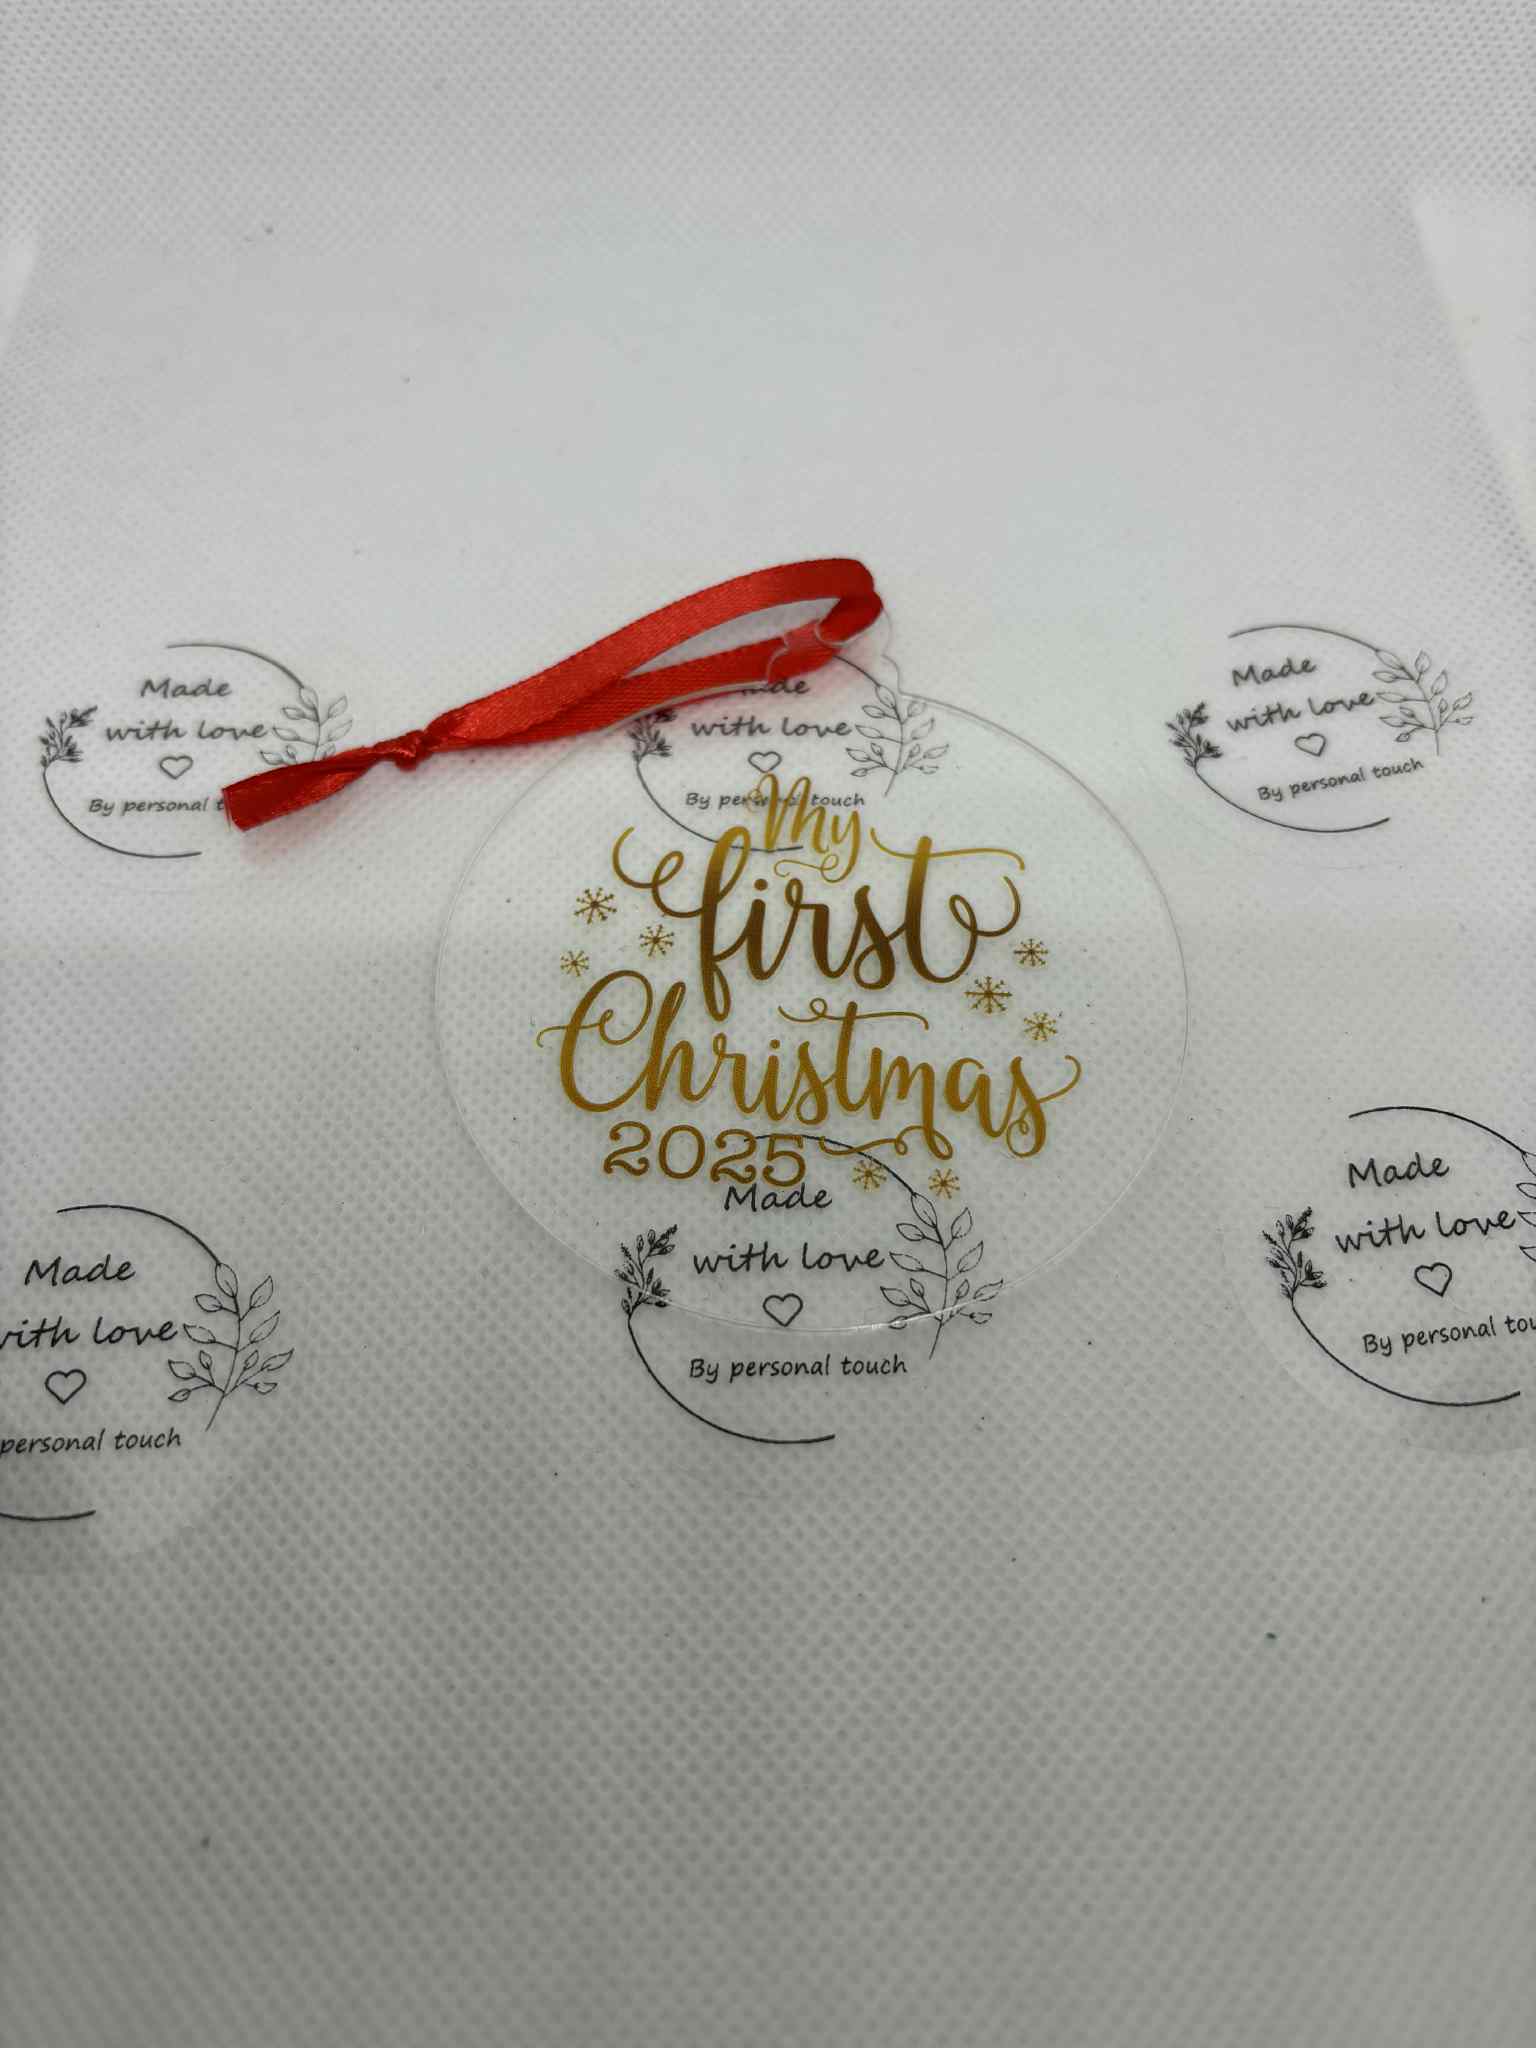 Made
with love
By personal
Made
with love
By personal touch
Made
with love
By personal touch
My
first
Christmas
2025
Made
with love
By personal touch
Made
with love
personal touch
Made
with love
By personal